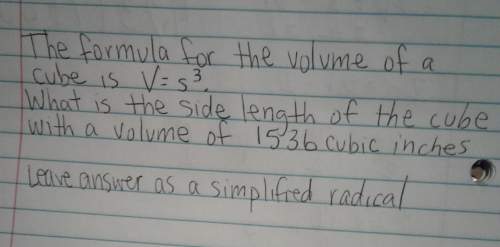 The formula for the volume of a
cube is V = s³.
What is the side length of the cube
with a volume of 1536 cubic inches
Leave answer as a simplified radical